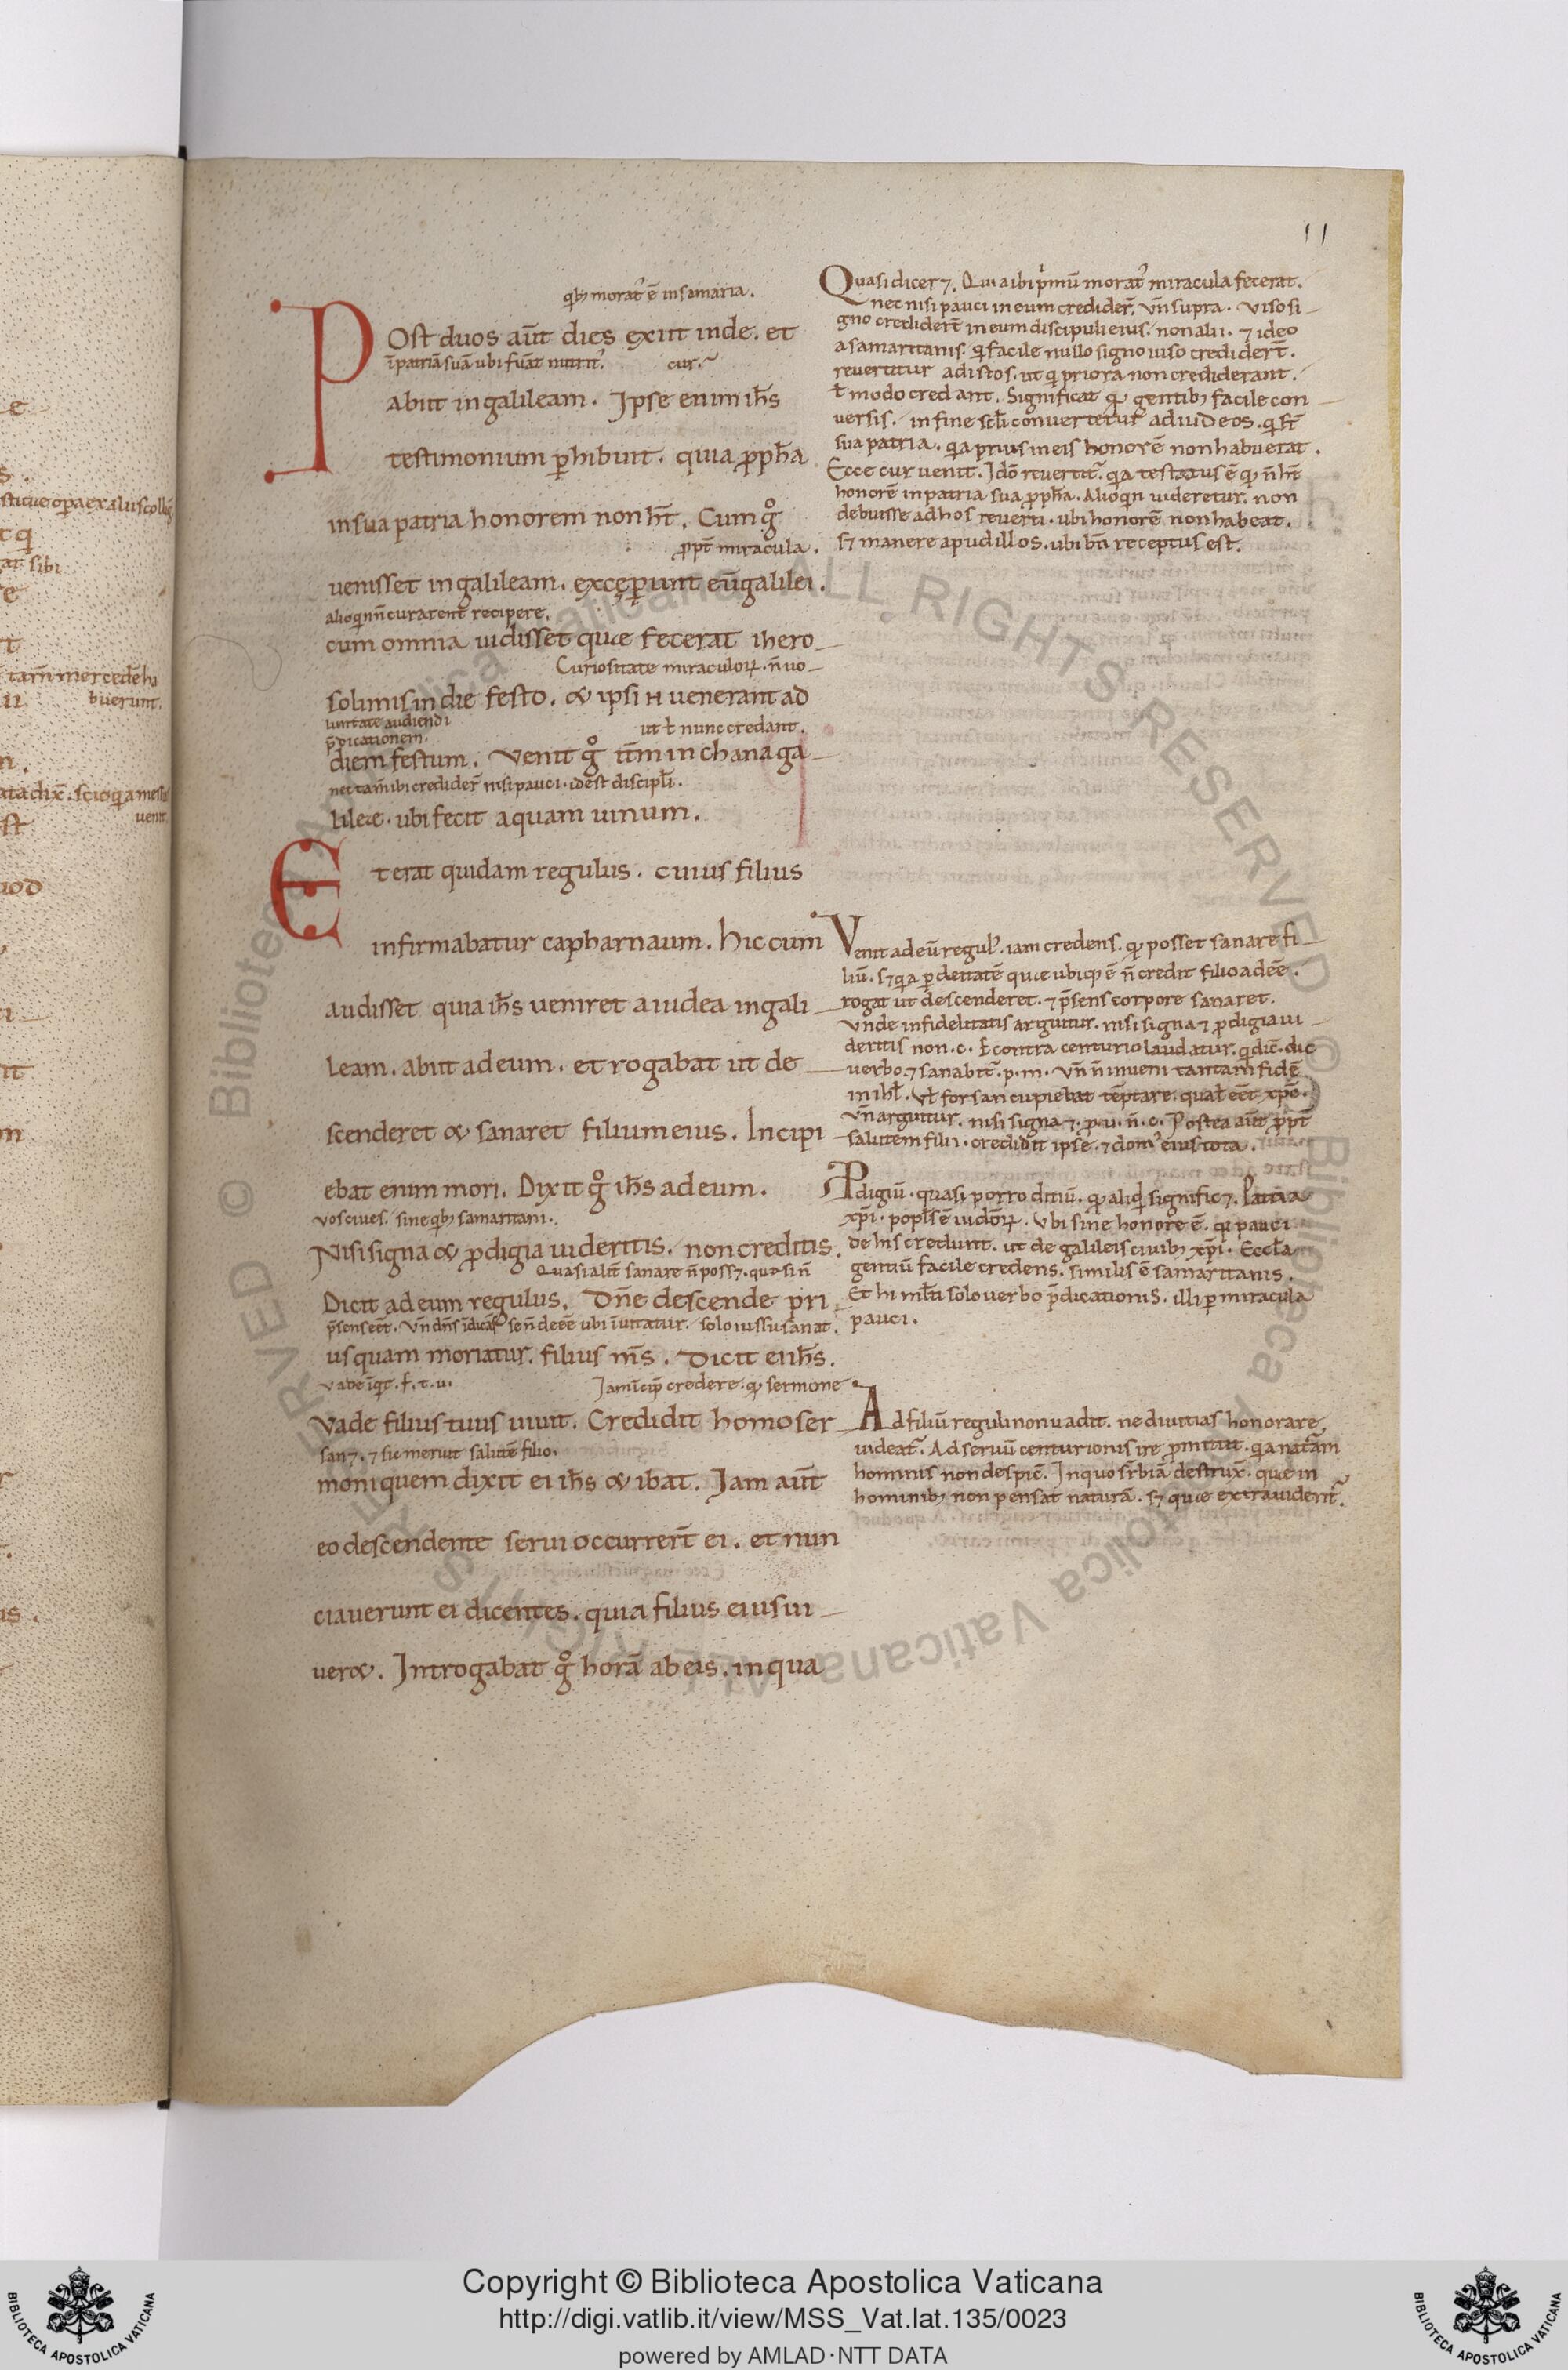 11
qb; morat' ē in samaria.
POst duos aūt dies exiit inde. et
ī patriā suā ubi fuāt nutrit'. cur.
Abiit in galileam. Ipse enim ih̄s
testimonium phibuit. quia ppha
in sua patria honorem non ht̄. Cum gͦ
ppt̄ miracula.
uenisset in galileam. exceperunt eū galilei.
alioqn n̄ curarent recipere.
cum omnia uidisset quae fecerat ihero
Curiositate miraculoꝝ. n̄ uo
solimis in die festo. & ipsi H uenerant ad
luntate audiendi
p̄dicationem.
ut ł nunc credant.
diem festum. Venit gͦ itm̄ in chana ga
nec tam̄ ibi credider̄ nisi pauci. id est discipłi.
lileae. ubi fecit aquam uinum.
Et erat quidam regulus. cuius filius
infirmabatur capharnaum. hic cum
audisset quia ih̄s ueniret a iudea in gali
leam. abiit ad eum. et rogabat ut de
scenderet & sanaret filium eius. Incipi
ebat enim mori. Dixit gͦ ih̄s ad eum.
uos ciues. sine qb; samaritani.
Nisi signa & pdigia uideritis. non creditis.
Quasi alit̄ sanare n̄ poss&. quasi n̄
Dicit ad eum regulus. Dn̄e descende pri
p̄sens eēt. Vn̄ dn̄s īdicās se n̄ deēē ubi īuitatur. solo iussu sanat.
usquam moriatur. filius m̄s. Dicit ei ih̄s.
Vade īqt. f. t. u.
Iam īcip credere. qp sermone
Vade filius tuus uiuit. Credidit homo ser
san&. & sic meruit salutē filio.
moni quem dixit ei ih̄s & ibat. Iam aūt
eo descendente serui occurrer̄t ei. et nun
ciauerunt ei dicentes. quia filius eius ui
uer&. Introgabat gͦ horā ab eis. in qua
Quasi dicer&. Quia ibi pmū morat' miracula fecerat.
nec nisi pauci in eum credider̄. Vn̄ supra. Viso si
gno credider̄t in eum discipuli eius. non alii. & ideo
a samaritanis. q facile nullo signo uiso credider̄t.
reuertitur ad istos. ut q priora non crediderant.
ł modo credant. Significat qp gentib; facile con
uersis. in fine scłi conuertetur ad iudeos. q st̄
sua patria. qa prius in eis honorē non habuerat.
Ecce cur uenit. Idō reuertit'. qa testatus ē qp n̄ ht̄
honorē in patria sua ppha. Alioqn uideretur. non
debuisse ad hos reuerti. ubi honorē non habeat.
s& manere apud illos. ubi bn̄ receptus est.
Venit ad eū regul'. iam credens. qp posset sanare fi
liū. s& qa p deitatē quae ubiq; ē n̄ credit filio adeē.
rogat ut descenderet. & p̄sens corpore sanaret.
Vnde infidelitatis arguitur. nisi signa & pdigia ui
deritis non. c. Econtra centurio laudatur. q dic̄. dic
uerbo. & sanabit'. p. m. Vn̄ n̄ inueni tantam fidē
in ihł. Vł forsan cupiebat tēptare. quał eēt xpc̄.
Vn̄ arguitur. nisi signa &. p. u. n̄. c. Postea aūt ppt̄
salutem filii. credidit ipse. & dom' eius tota.
Pdigiū. quasi porro diciū. qp aliqd signific&. Patria
xpi. popłs ē iudōꝝ. Vbi sine honore ē. qa pauci
de his credunt. ut de galileis ciuib; xpi. Eccła
gentiū facile credens. similis ē samaritanis.
Et hi młti solo uerbo p̄dicationis. illi p miracula
pauci.
Ad filiū reguli non uadit. ne diuitias honorare
uideat'. Ad seruū centurionis ire pmittit. qa natām
hominis non despic̄. In quo sr̄biā destrux̄. quae in
hominib; non pensat naturā. s& quae extra uident'.
Copyright © Biblioteca Apostolica Vaticana
http://digi.vatlib.it/view/MSS_Vat.lat.135/0023
powered by AMLAD·NTT DATA
BIBLIOTECA APOSTOLICA VATICANA
BIBLIOTECA APOSTOLICA VATICANA